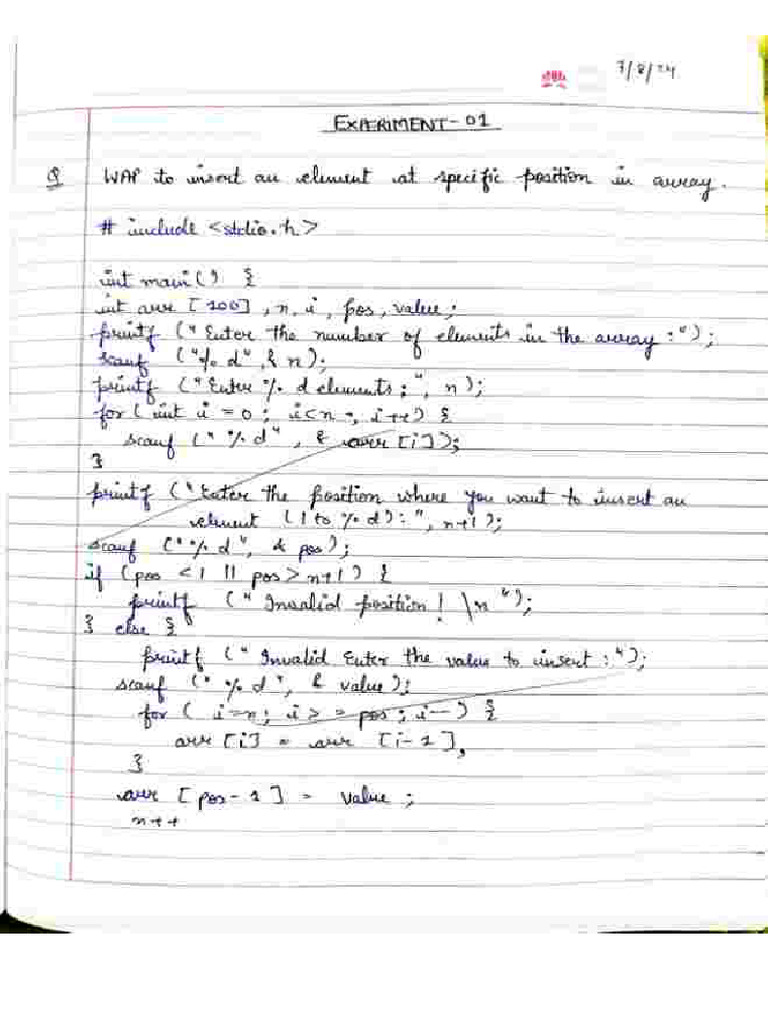 7/8/24
EXPERIMENT-01
Q WAP to insert an element at specific position in array.
# include <stdio.h>
int main() {
int arr [100], n, i, pos, value;
printf ("Enter the number of elements in the array :");
scanf ("% d", & n);
printf ("Enter % d elements :", n);
for (int i = 0; i<n; i++) {
scanf ("% d", & arr [i]);
}
printf ("Enter the position where you want to insert an
element (1 to % d):", n+1);
scanf ("% d", & pos);
if (pos < 1 || pos > n+1) {
printf (" Invalid position ! \n ");
} else {
printf (" Invalid Enter the value to insert :");
scanf (" % d", & value);
for ( i=n; i > = pos ; i--) {
arr [i] = arr [i-1],
}
arr [pos-1] = value ;
n++